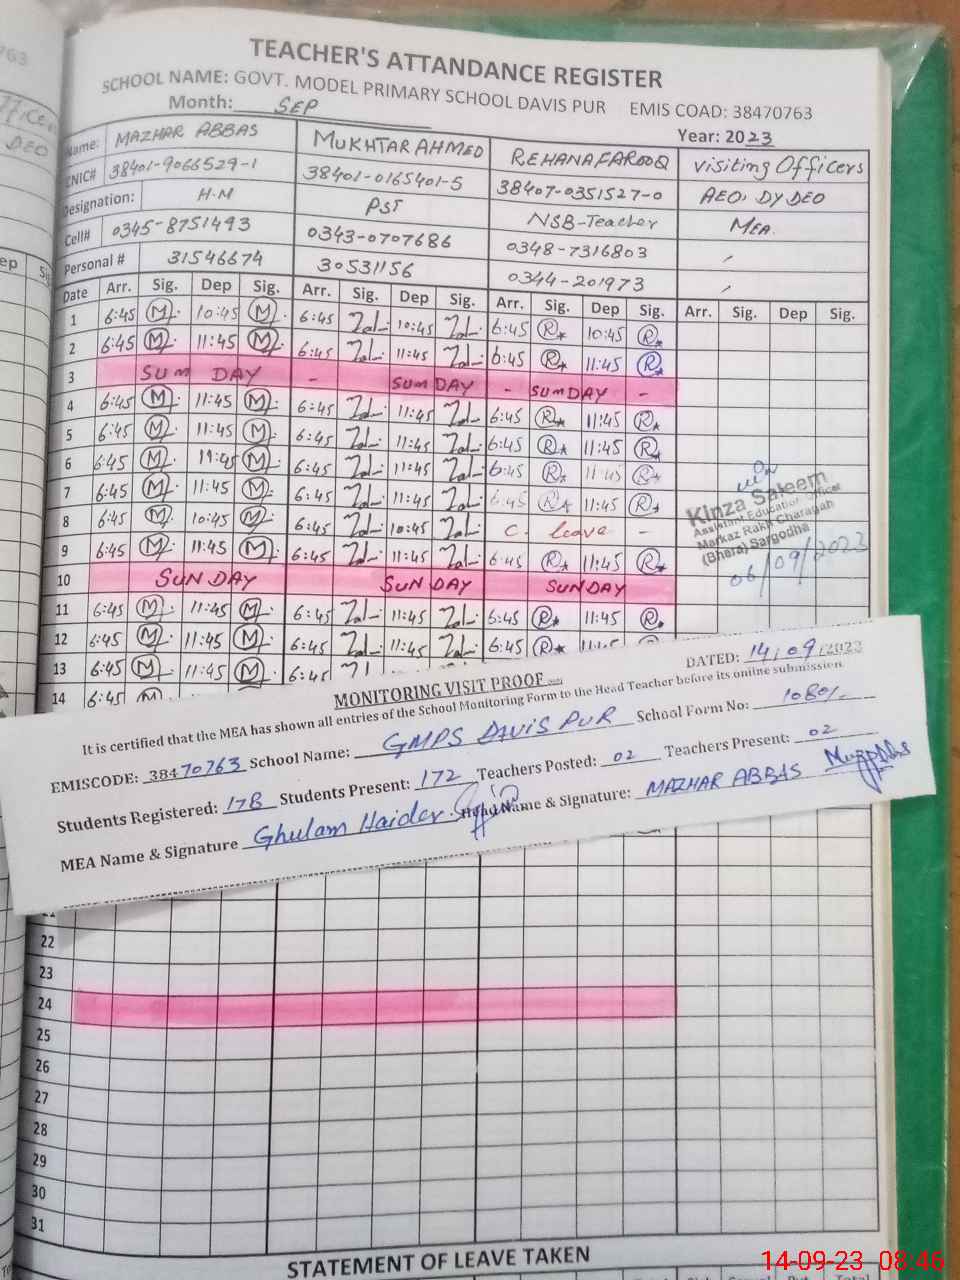 TEACHER'S ATTANDANCE REGISTER
SCHOOL NAME: GOVT. MODEL PRIMARY SCHOOL DAVIS PUR EMIS COAD: 38470763
Month: SEP Year: 2023
Name: MAZHAR ABBAS MUKHTAR AHMED REHANA FAROOQ Visiting Officers
CNIC# 38401-9066529-1 38401-0165401-5 38407-0351527-0 AEO, DY DEO
Designation: H.M PST NSB-Teacher MEA
Cell# 0345-8751493 0343-0707686 0348-7316803
Personal # 31546674 30531156 0344-201973
Date Arr. Sig. Dep Sig. Arr. Sig. Dep Sig. Arr. Sig. Dep Sig. Arr. Sig. Dep Sig.
1 6:45 M 10:45 M 6:45 10:45 6:45 R 10:45 R
2 6:45 M 11:45 M 6:45 11:45 6:45 R 11:45 R
3 SUM DAY - SUM DAY - SUM DAY -
4 6:45 M 11:45 M 6:45 11:45 6:45 R 11:45 R
5 6:45 M 11:45 M 6:45 11:45 6:45 R 11:45 R
6 6:45 M 11:45 M 6:45 11:45 6:45 R 11:45 R
7 6:45 M 11:45 M 6:45 11:45 6:45 R 11:45 R
8 6:45 M 10:45 M 6:45 10:45 C. leave -
9 6:45 M 11:45 M 6:45 11:45 6:45 R 11:45 R
Kinza Saleem
Assistant Education Officer
Markaz Rakh Charagah
(Bhera) Sargodha
06/09/2023
10 SUNDAY SUNDAY SUNDAY
11 6:45 M 11:45 M 6:45 11:45 6:45 R 11:45 R
12 6:45 M 11:45 M 6:45 11:45 6:45 R
13 6:45 M 11:45 M 6:45
14 6:45 M
MONITORING VISIT PROOF DATED: 14/09/2023
It is certified that the MEA has shown all entries of the School Monitoring Form to the Head Teacher before its online submission
EMISCODE: 38470763 School Name: GMPS DAVIS PUR School Form No:
Students Registered: 178 Students Present: 172 Teachers Posted: 02 Teachers Present: 02
MEA Name & Signature Ghulam Haider Head Name & Signature: MAZHAR ABBAS
22
23
24
25
26
27
28
29
30
31
STATEMENT OF LEAVE TAKEN
14-09-23 08:46